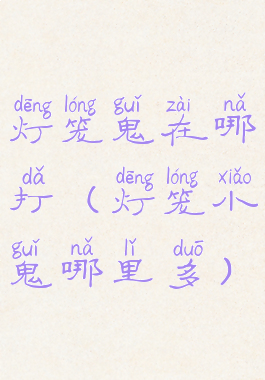 dēng lóng guǐ zài nǎ
灯笼鬼在哪
dǎ dēng lóng xiǎo
打（灯笼小
guǐ nǎ lǐ duō
鬼哪里多）